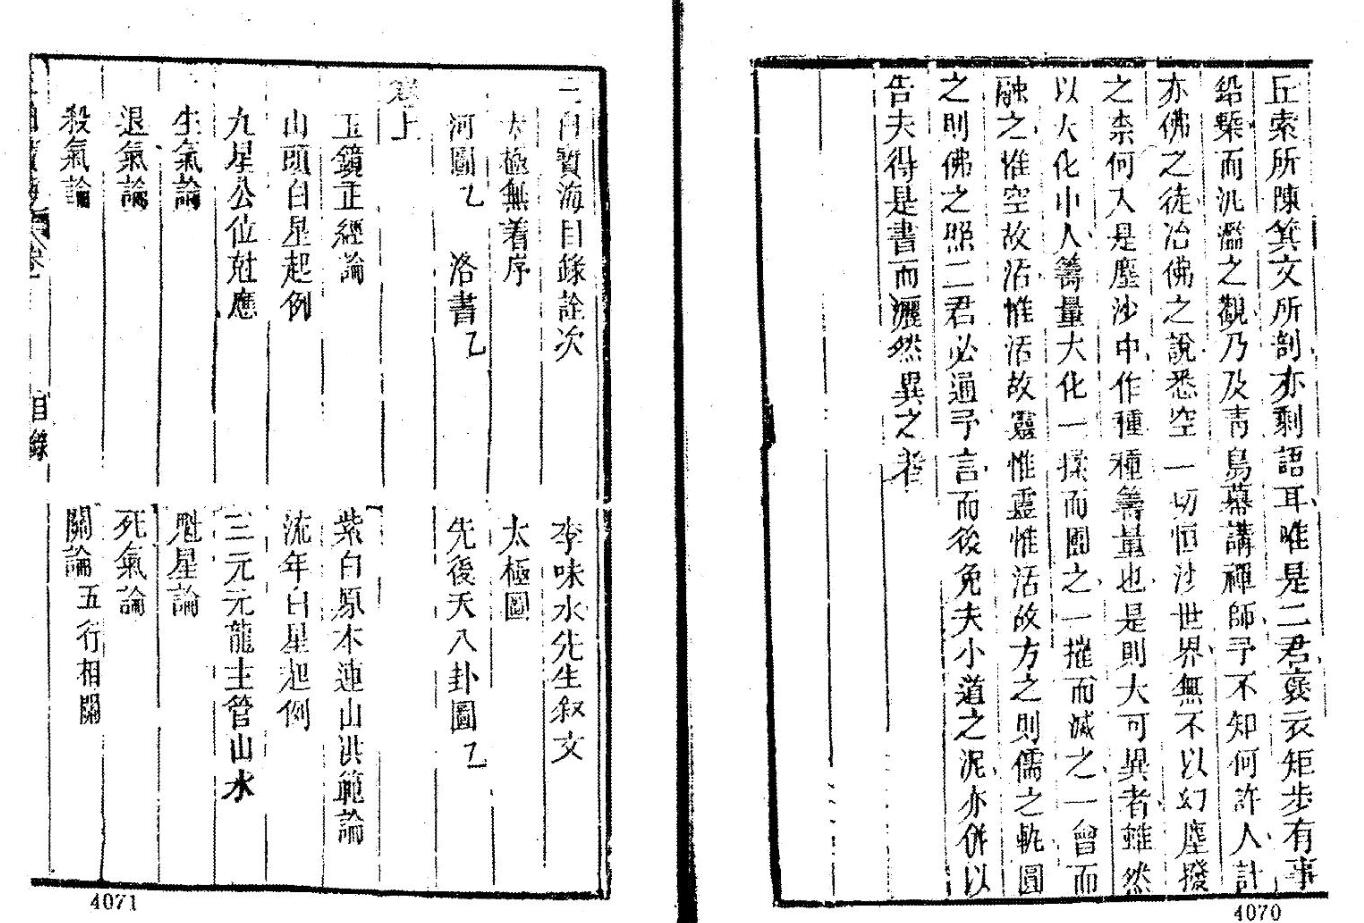 丘索所陳箕文所剖亦剩語耳唯是二君褒衣矩步有事
鉛槧而汎濫之觀乃及靑烏幕講禪師予不知何許人計
亦佛之徒冶佛之說悉空一切恒沙世界無不以幻塵撥
之柰何入是塵沙中作種種籌量也是則大可異者雖然
以大化中人籌量大化一揉而圑之一摧而滅之一曾而
融之惟空故活惟活故靈惟靈惟活故方之則儒之軌圓
之則佛之照二君必逼予言而後免夫小道之泥亦併以
告夫得是書而灑然異之者
4070
三白寶海目錄詮次 李味水先生叙文
太極無着序 太極圖
河圖乙 洛書乙 先後天八卦圖乙
卷上
玉鏡正經論 紫白原本連山洪範論
山頭白星起例 流年白星起例
九星公位尅應 三元元龍主管山水
生氣論 魁星論
退氣論 死氣論
殺氣論 關論五行相關
卷一 目錄
4071